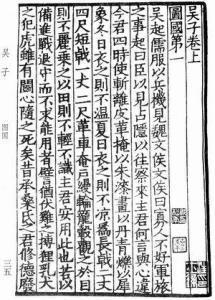 吳子卷上
圖國第一
吳起儒服以兵機見魏文侯文侯曰寡人不好軍旅
之事起曰臣以見占隱以往察來主君何言與心違
今君四時使斬離皮革掩以朱漆畫以丹青爍以犀
象冬日衣之則不溫夏日衣之則不涼爲長戟二丈
四尺短戟一丈二尺革車奄戶縵輪籠轂觀之於目
則不麗乘之以田則不輕不識主君安用此也若以
備進戰退守而不求能用者譬猶伏雞之搏狸乳犬
之犯虎雖有鬭心隨之死矣昔承桑氏之君修德廢
吳子
圖國
三五